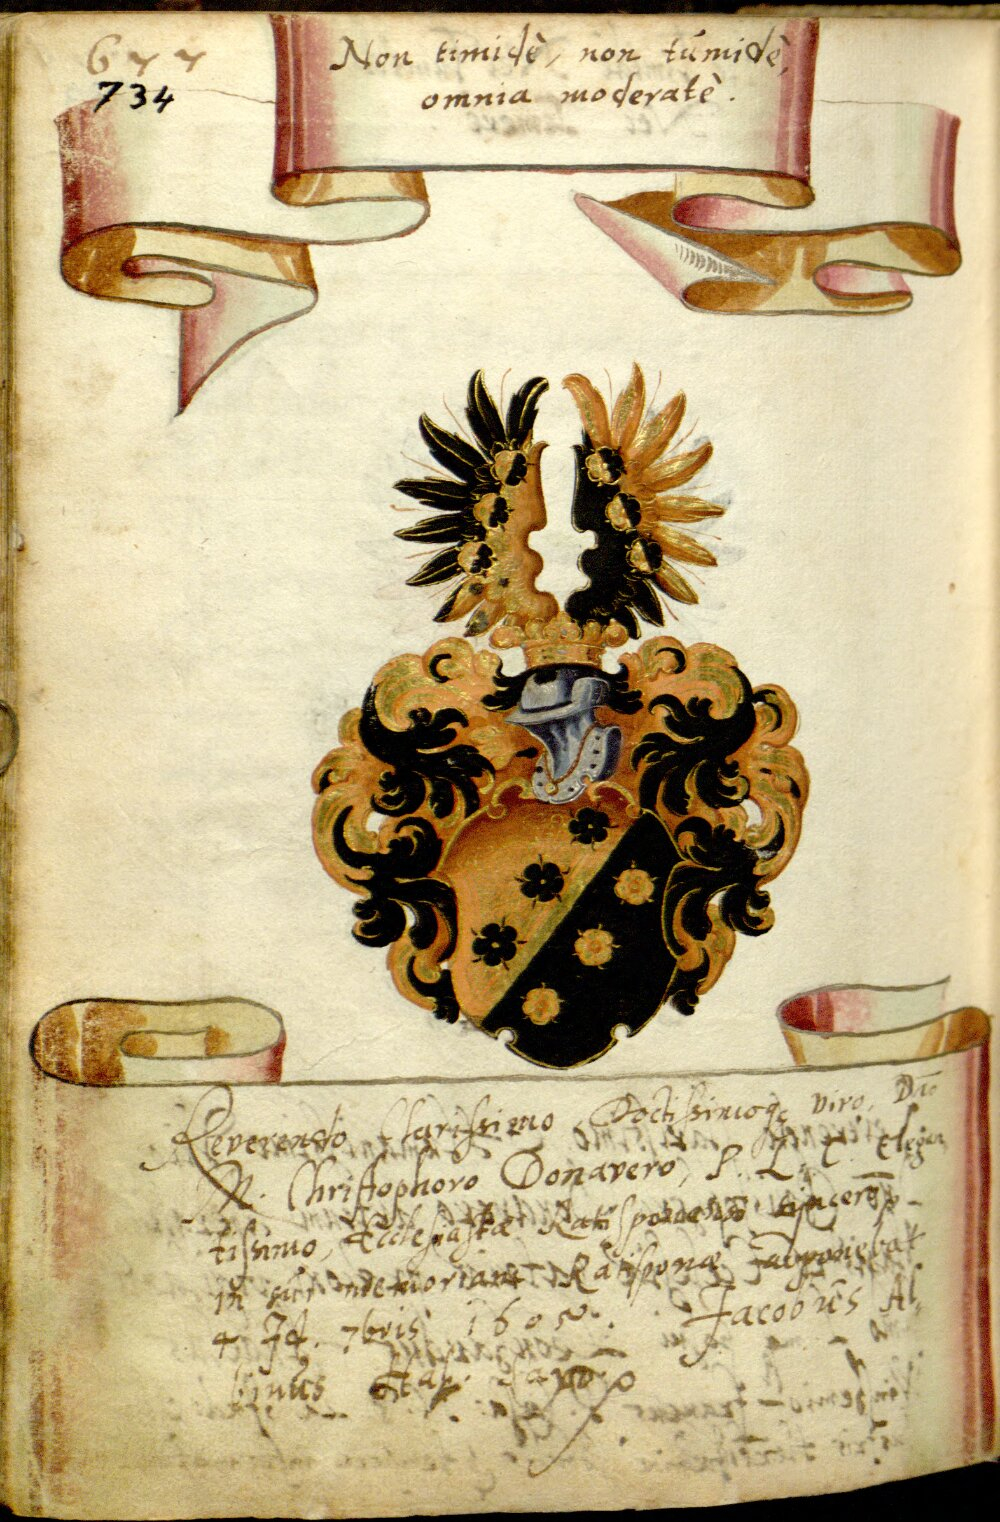 677
734
Non timidè, non tumidè,
omnia moderatè.
Reverendo Clarissimo Doctissimoq; viro, Dño
M. Christophoro Donavero, P. L. C. Elegan
tissimo, Ecclesiastæ Ratisponensi sincero
in sui memoriam Ratisponæ apponebat
4 Id. 7bris 1605. Jacobus Al-
binus